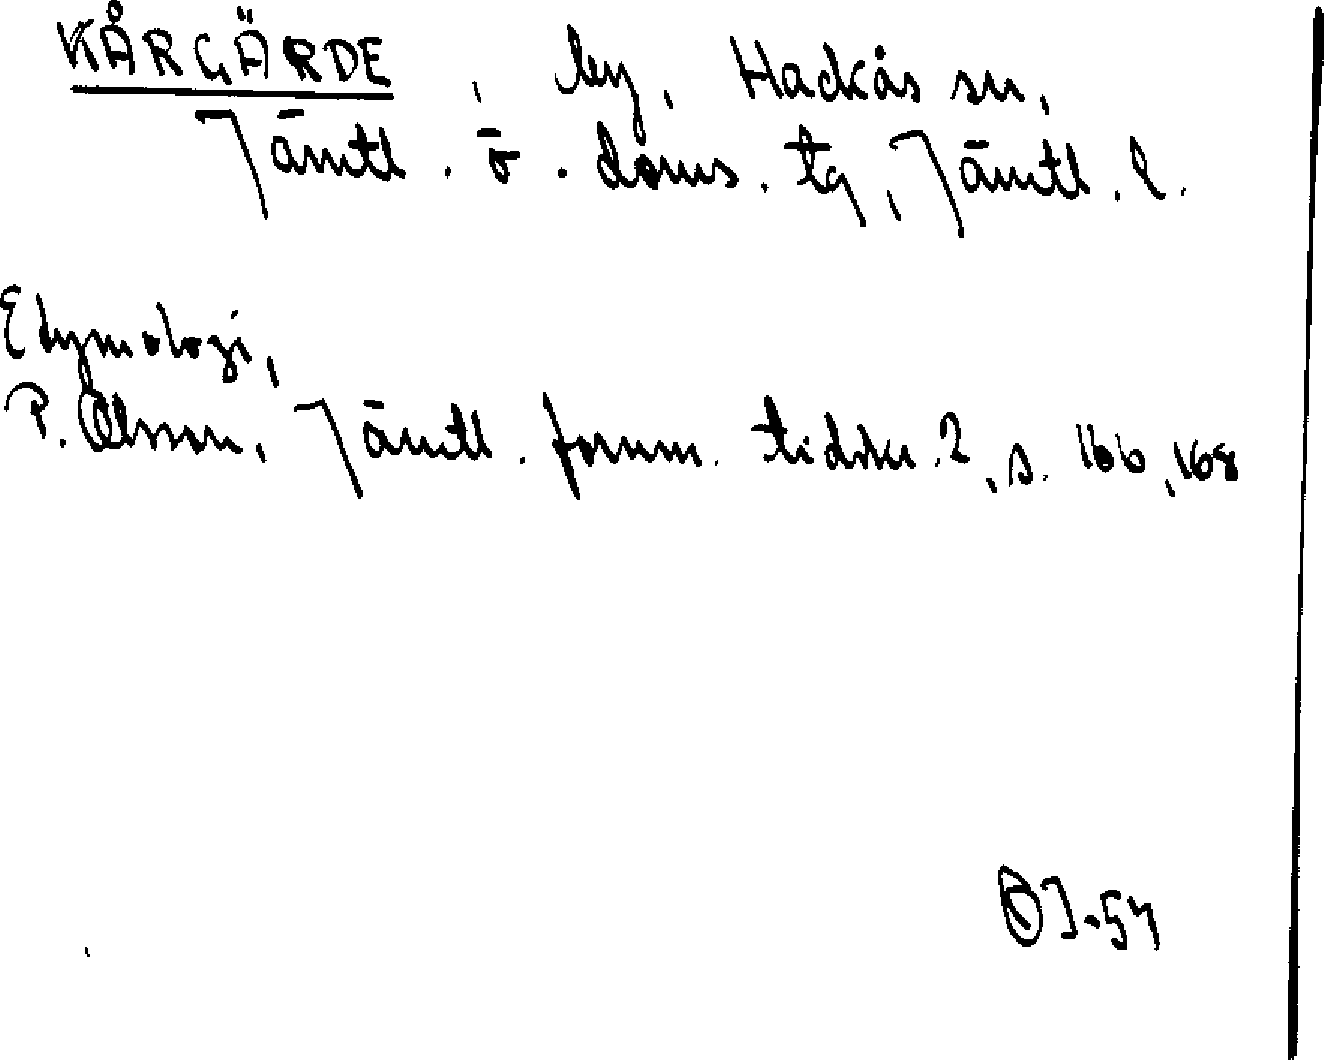 KÅRGÄRDE, by, Hackås sn,
Jämtl. ö. doms. tg, Jämtl. l.
Etymologi,
P. Olsson, Jämtl. fornm. tidskr. 2, s. 166, 168
OJ-54